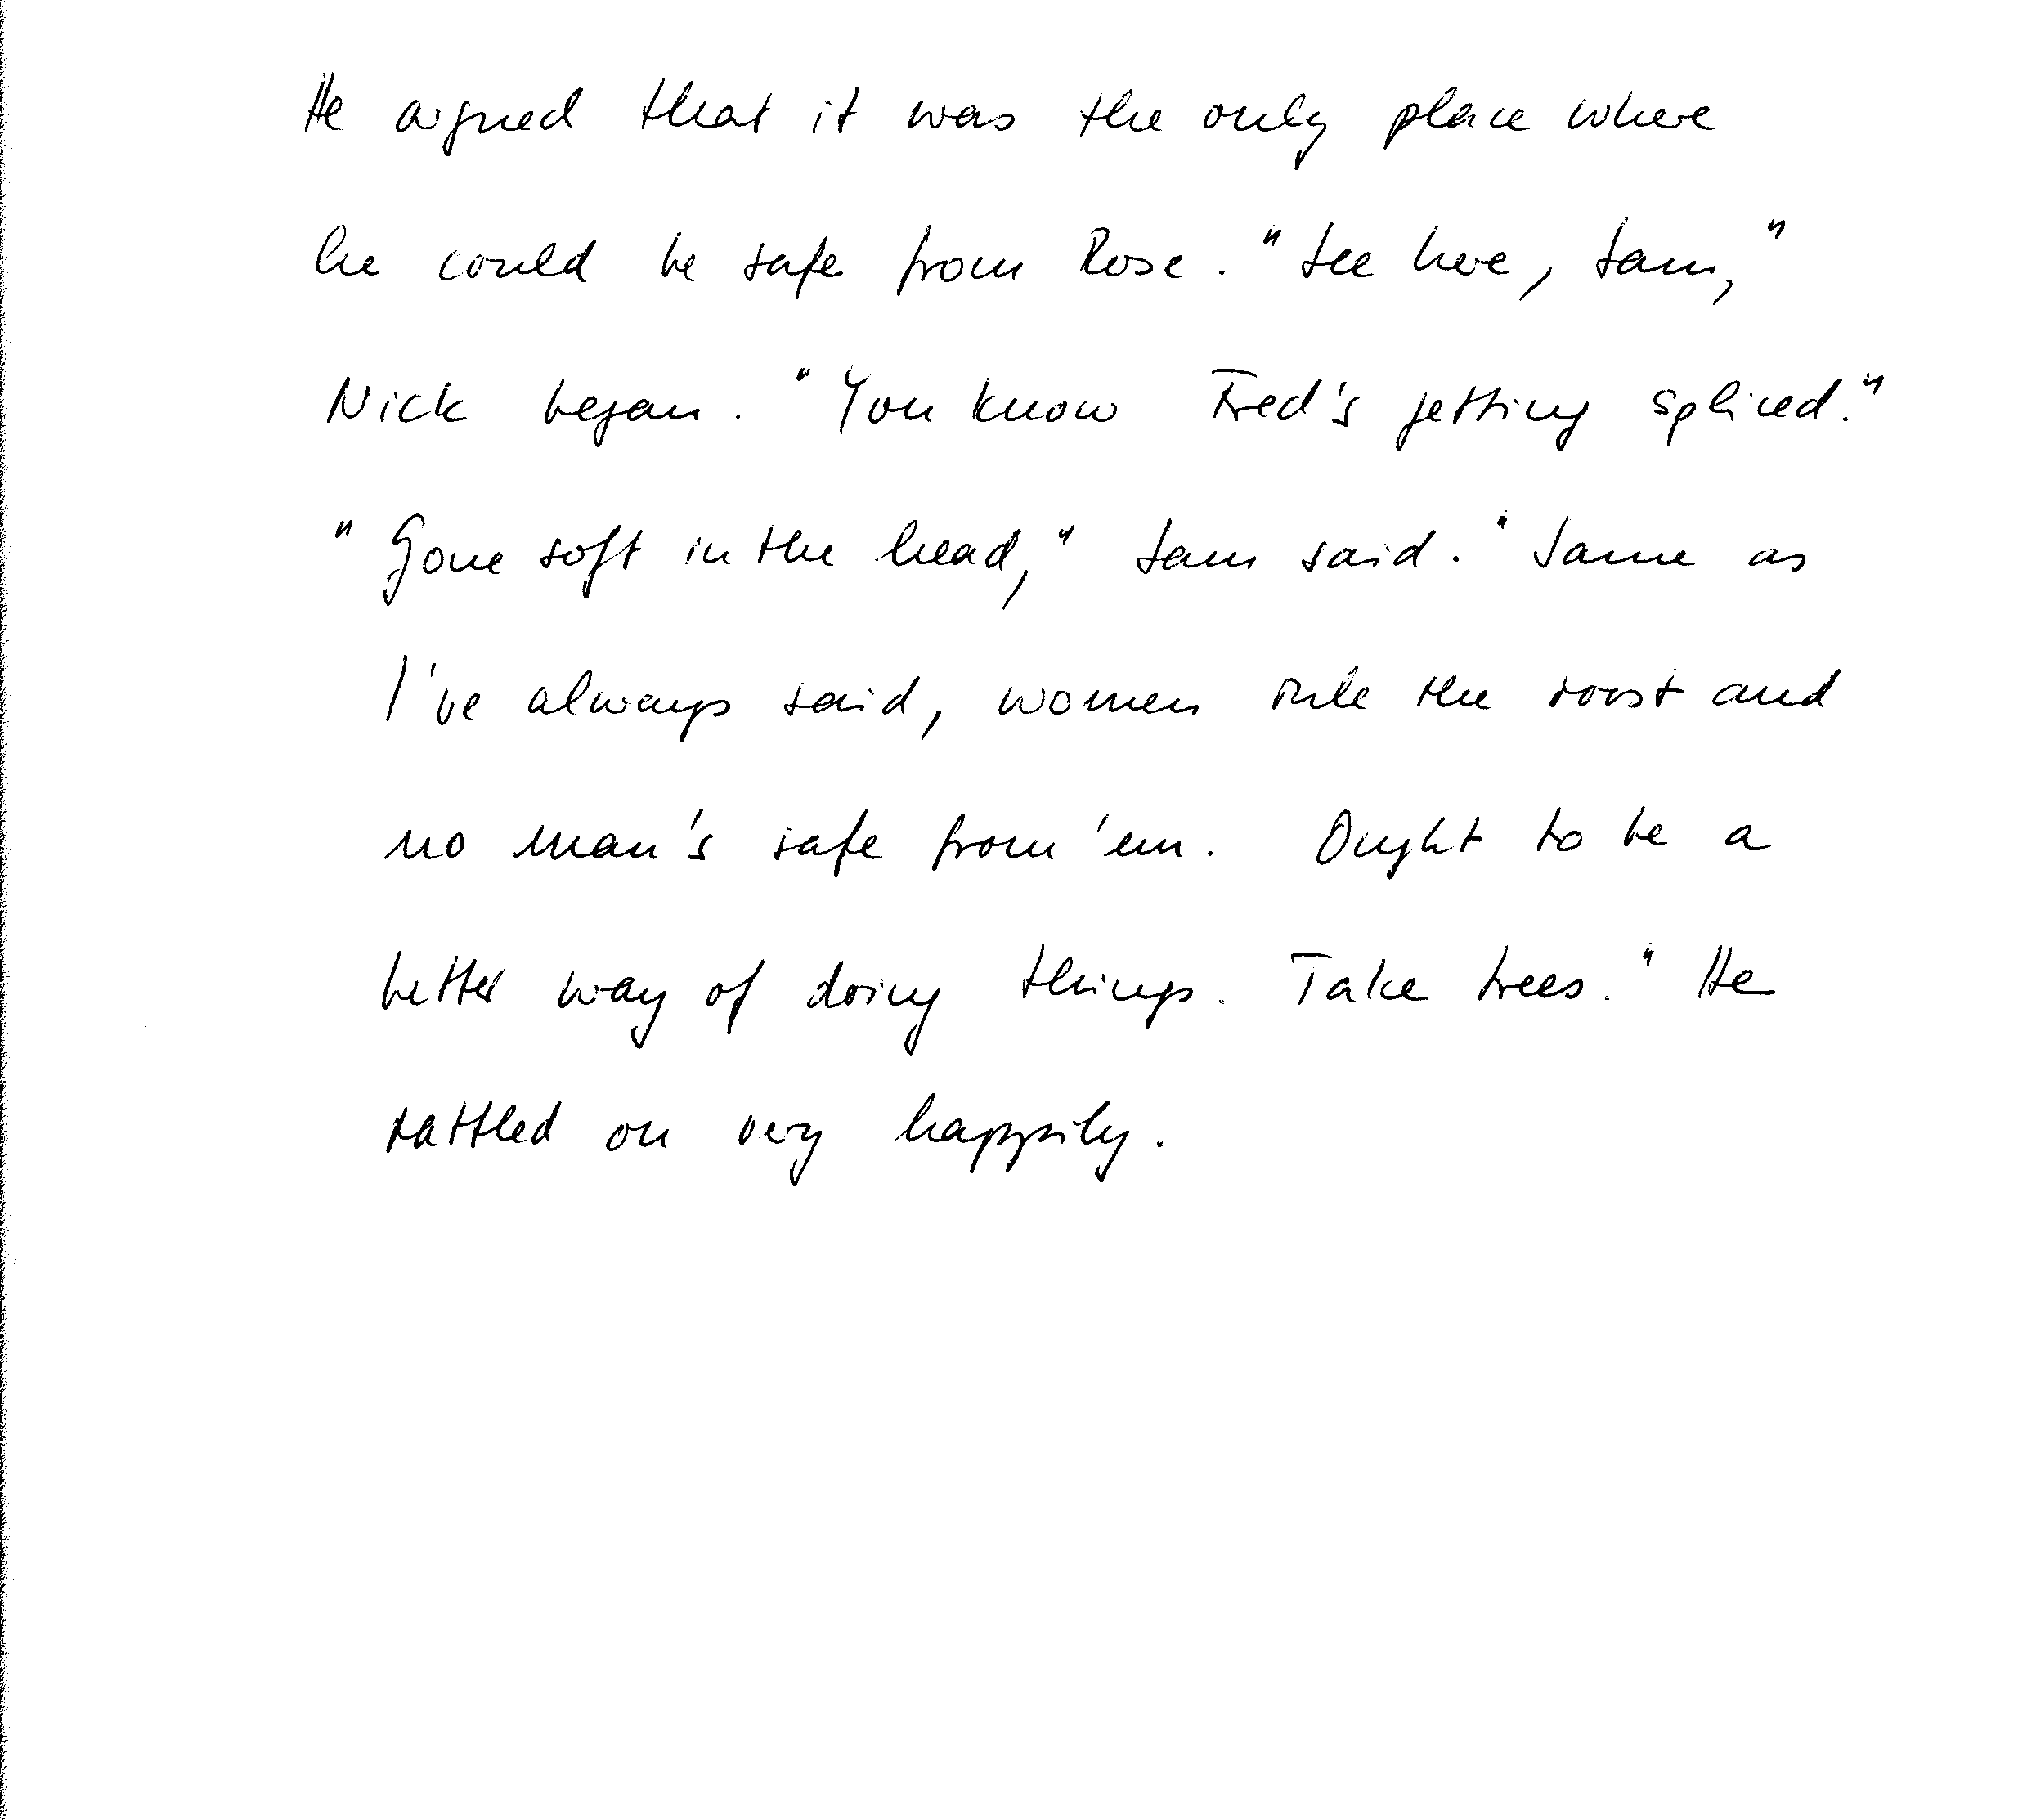 He argued that it was the only place where
he could be safe from Rose. "See here, Sam,"
Nick began. "You know Fred's getting spliced."
"Gone soft in the head," Sam said. "Same as
I've always said, women rule the roost and
no man's safe from 'em. Ought to be a
better way of doing things. Take trees." He
rattled on very happily.